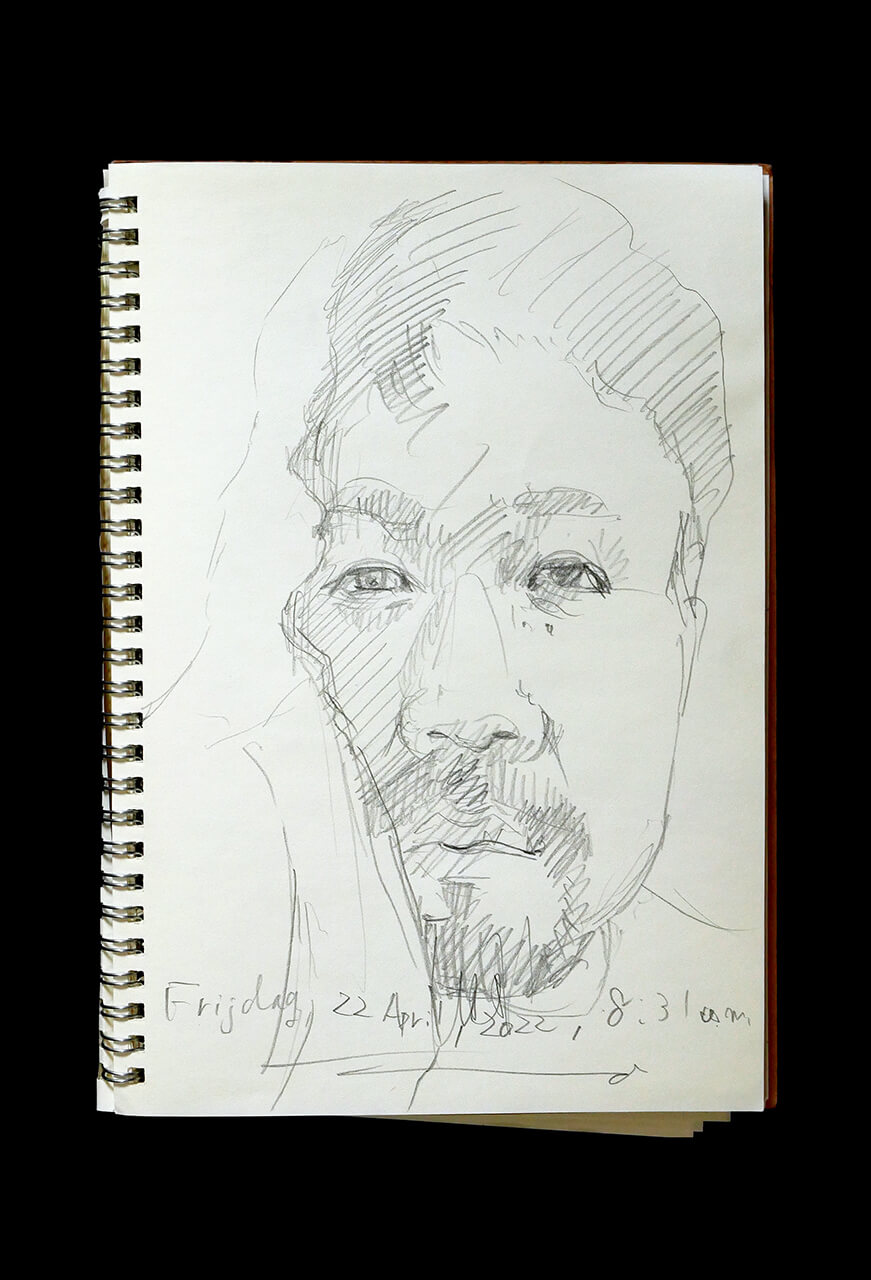 Frijdag, 22 April, 2022, 8:31am